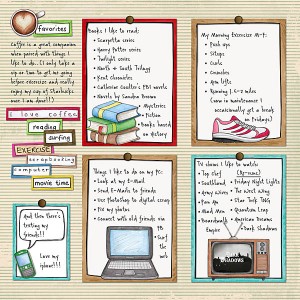 favorites
Coffee is a great companion
when paired with things I
like to do. I only take a
sip or two to get me going
before exercise and really
enjoy my cup of Starbucks
when I am done!!
i love coffee
reading
surfing
EXERCISE
scrapbooking
computer
movie time
And then there's
texting my
friends!!
Love my
iphone!!!!
Books I like to read:
• Scarpetta series
• Harry Potter series
• Twilight series
• North & South Trilogy
• Kent Chronicles
• Catherine Coulter's FBI novels
• Novels by Sandra Brown
• Mysteries
• Fiction
• Books
based on
history
My Morning Exercise M-F:
• Push ups
• Situps
• Curls
• Crunches
• Arm lifts
• Running 1.5-2 miles
(now in maintenance I
occasionally get a break
on Fridays)
Things I like to do on my PC:
• Look at my E-Mail
• Send E-Mails to friends
• Use Photoshop to digital scrap
• Fix my photos
• Connect with old friends via
FB
• Surf
the
web
TV shows I like to watch:
(Re-runs)
• Top Chef
• Southland
• Army Wives
• Pan Am
• Mad Men
• Boardwalk
Empire
• Friday Night Lights
• The West Wing
• Star Trek TNG
• Quantum Leap
• American Dreams
• Dark Shadows
SHADOWS